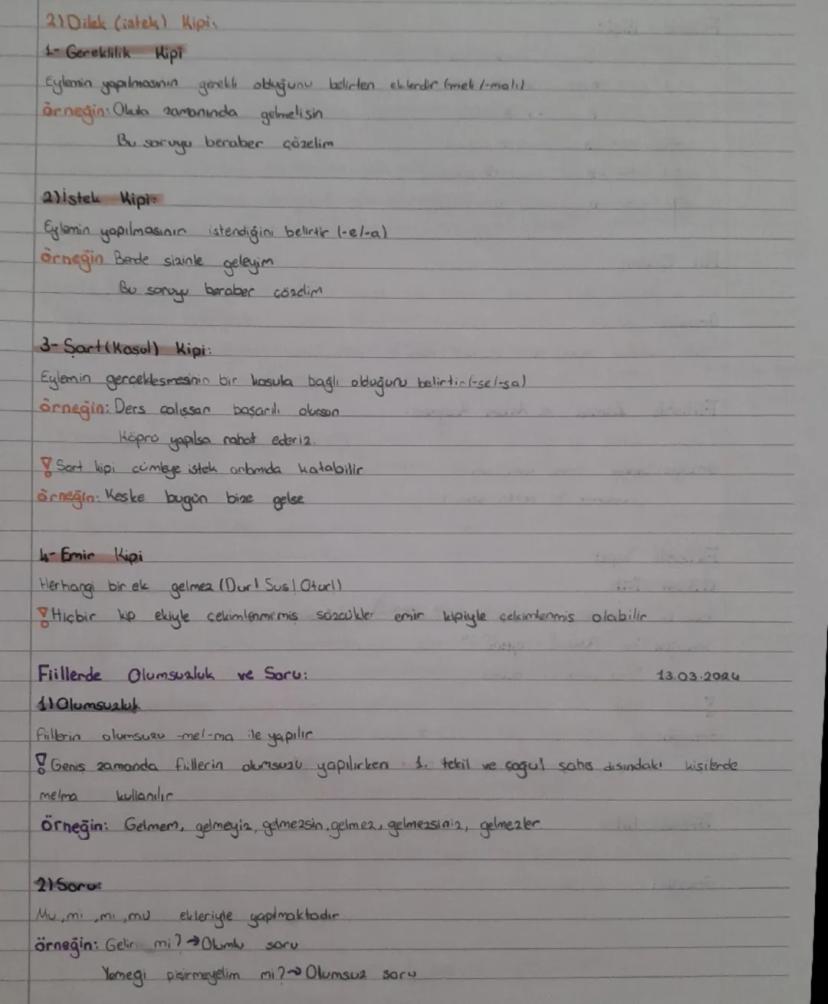 2) Dilek (istek) Kipi:
1- Gereklilik Kipi
Eylemin yapılmasının gerekli olduğunu belirten eklerdir (mek/-malı)
örneğin: Okula zamanında gelmelisin
Bu soruyu beraber çözelim
2) İstek Kipi:
Eylemin yapılmasının istendiğini belirtir (-e/-a)
örneğin Bende sizinle geleyim
Bu soruyu beraber çözelim
3- Şart (Koşul) Kipi:
Eylemin gerçekleşmesinin bir koşula bağlı olduğunu belirtir (-se/-sa)
örneğin: Ders çalışsan başarılı olursun
Köprü yapılsa rahat ederiz.
! Şart kipi cümleye istek anlamıda katabilir
örneğin: Keşke bugün bize gelse
4- Emir Kipi
Herhangi bir ek gelmez (Dur! Sus! Otur!)
! Hiçbir kip ekiyle çekimlenmemiş sözcükler emir kipiyle çekimlenmiş olabilir
Fiillerde Olumsuzluk ve Soru: 13.03.2024
1) Olumsuzluk
Fiillerin olumsuzu -me/-ma ile yapılır
! Geniş zamanda fiillerin olumsuzu yapılırken 1. tekil ve çoğul şahıs dışındaki kişilerde
me/ma kullanılır
Örneğin: Gelmem, gelmeyiz, gelmezsin, gelmez, gelmezsiniz, gelmezler
2) Soru:
Mu, mi, mı, mü ekleriyle yapılmaktadır
örneğin: Gelir mi? → Olumlu soru
Yemeği pişirmeyelim mi? → Olumsuz soru